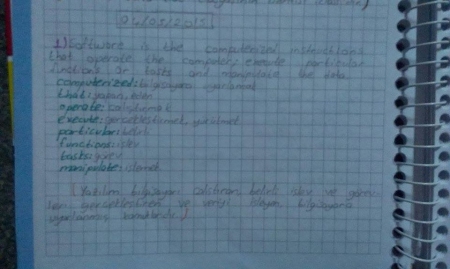 1) Software is the computerized instructions
that operate the computer, execute particular
functions or tasks and manipulate the data.
computerized: bilgisayara uyarlamak
that: yapan, eden
operate: çalıştırmak
execute: gerçekleştirmek, yürütmek
particular: belirli
functions: işlev
tasks: görev
manipulate: işlemek
(Yazılım bilgisayarı çalıştıran belirli işlev ve görev
leri gerçekleştiren ve veriyi işleyen bilgisayara
uyarlanmış komutlardır.)